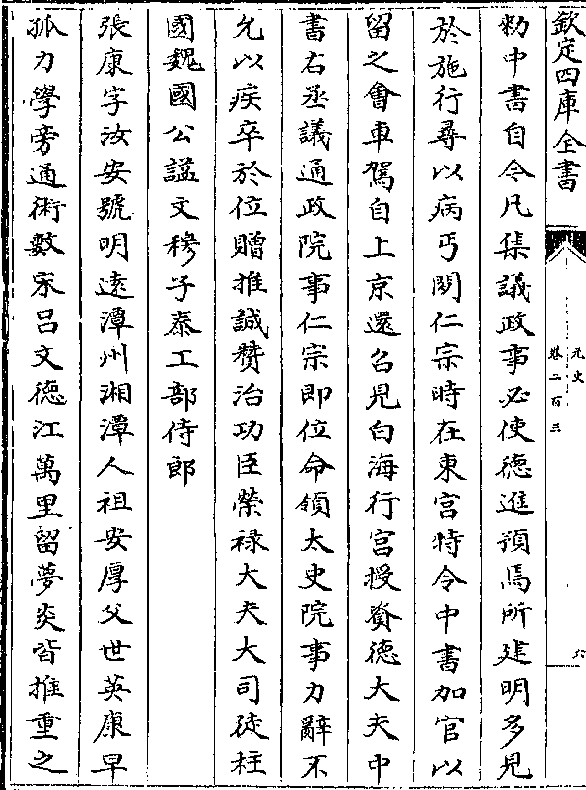 欽定四庫全書
元史
卷二百三
六
勑中書自今凡集議政事必使德進預焉所建明多見
於施行尋以病丐閒仁宗時在東宮特令中書加官以
留之會車駕自上京還召見白海行宮授資德大夫中
書右丞議通政院事仁宗即位命領太史院事力辭不
允以疾卒於位贈推誠贊治功臣榮祿大夫大司徒柱
國魏國公諡文穆子泰工部侍郎
張康字汝安號明遠潭州湘潭人祖安厚父世英康早
孤力學旁通術數宋呂文德江萬里留夢炎皆推重之